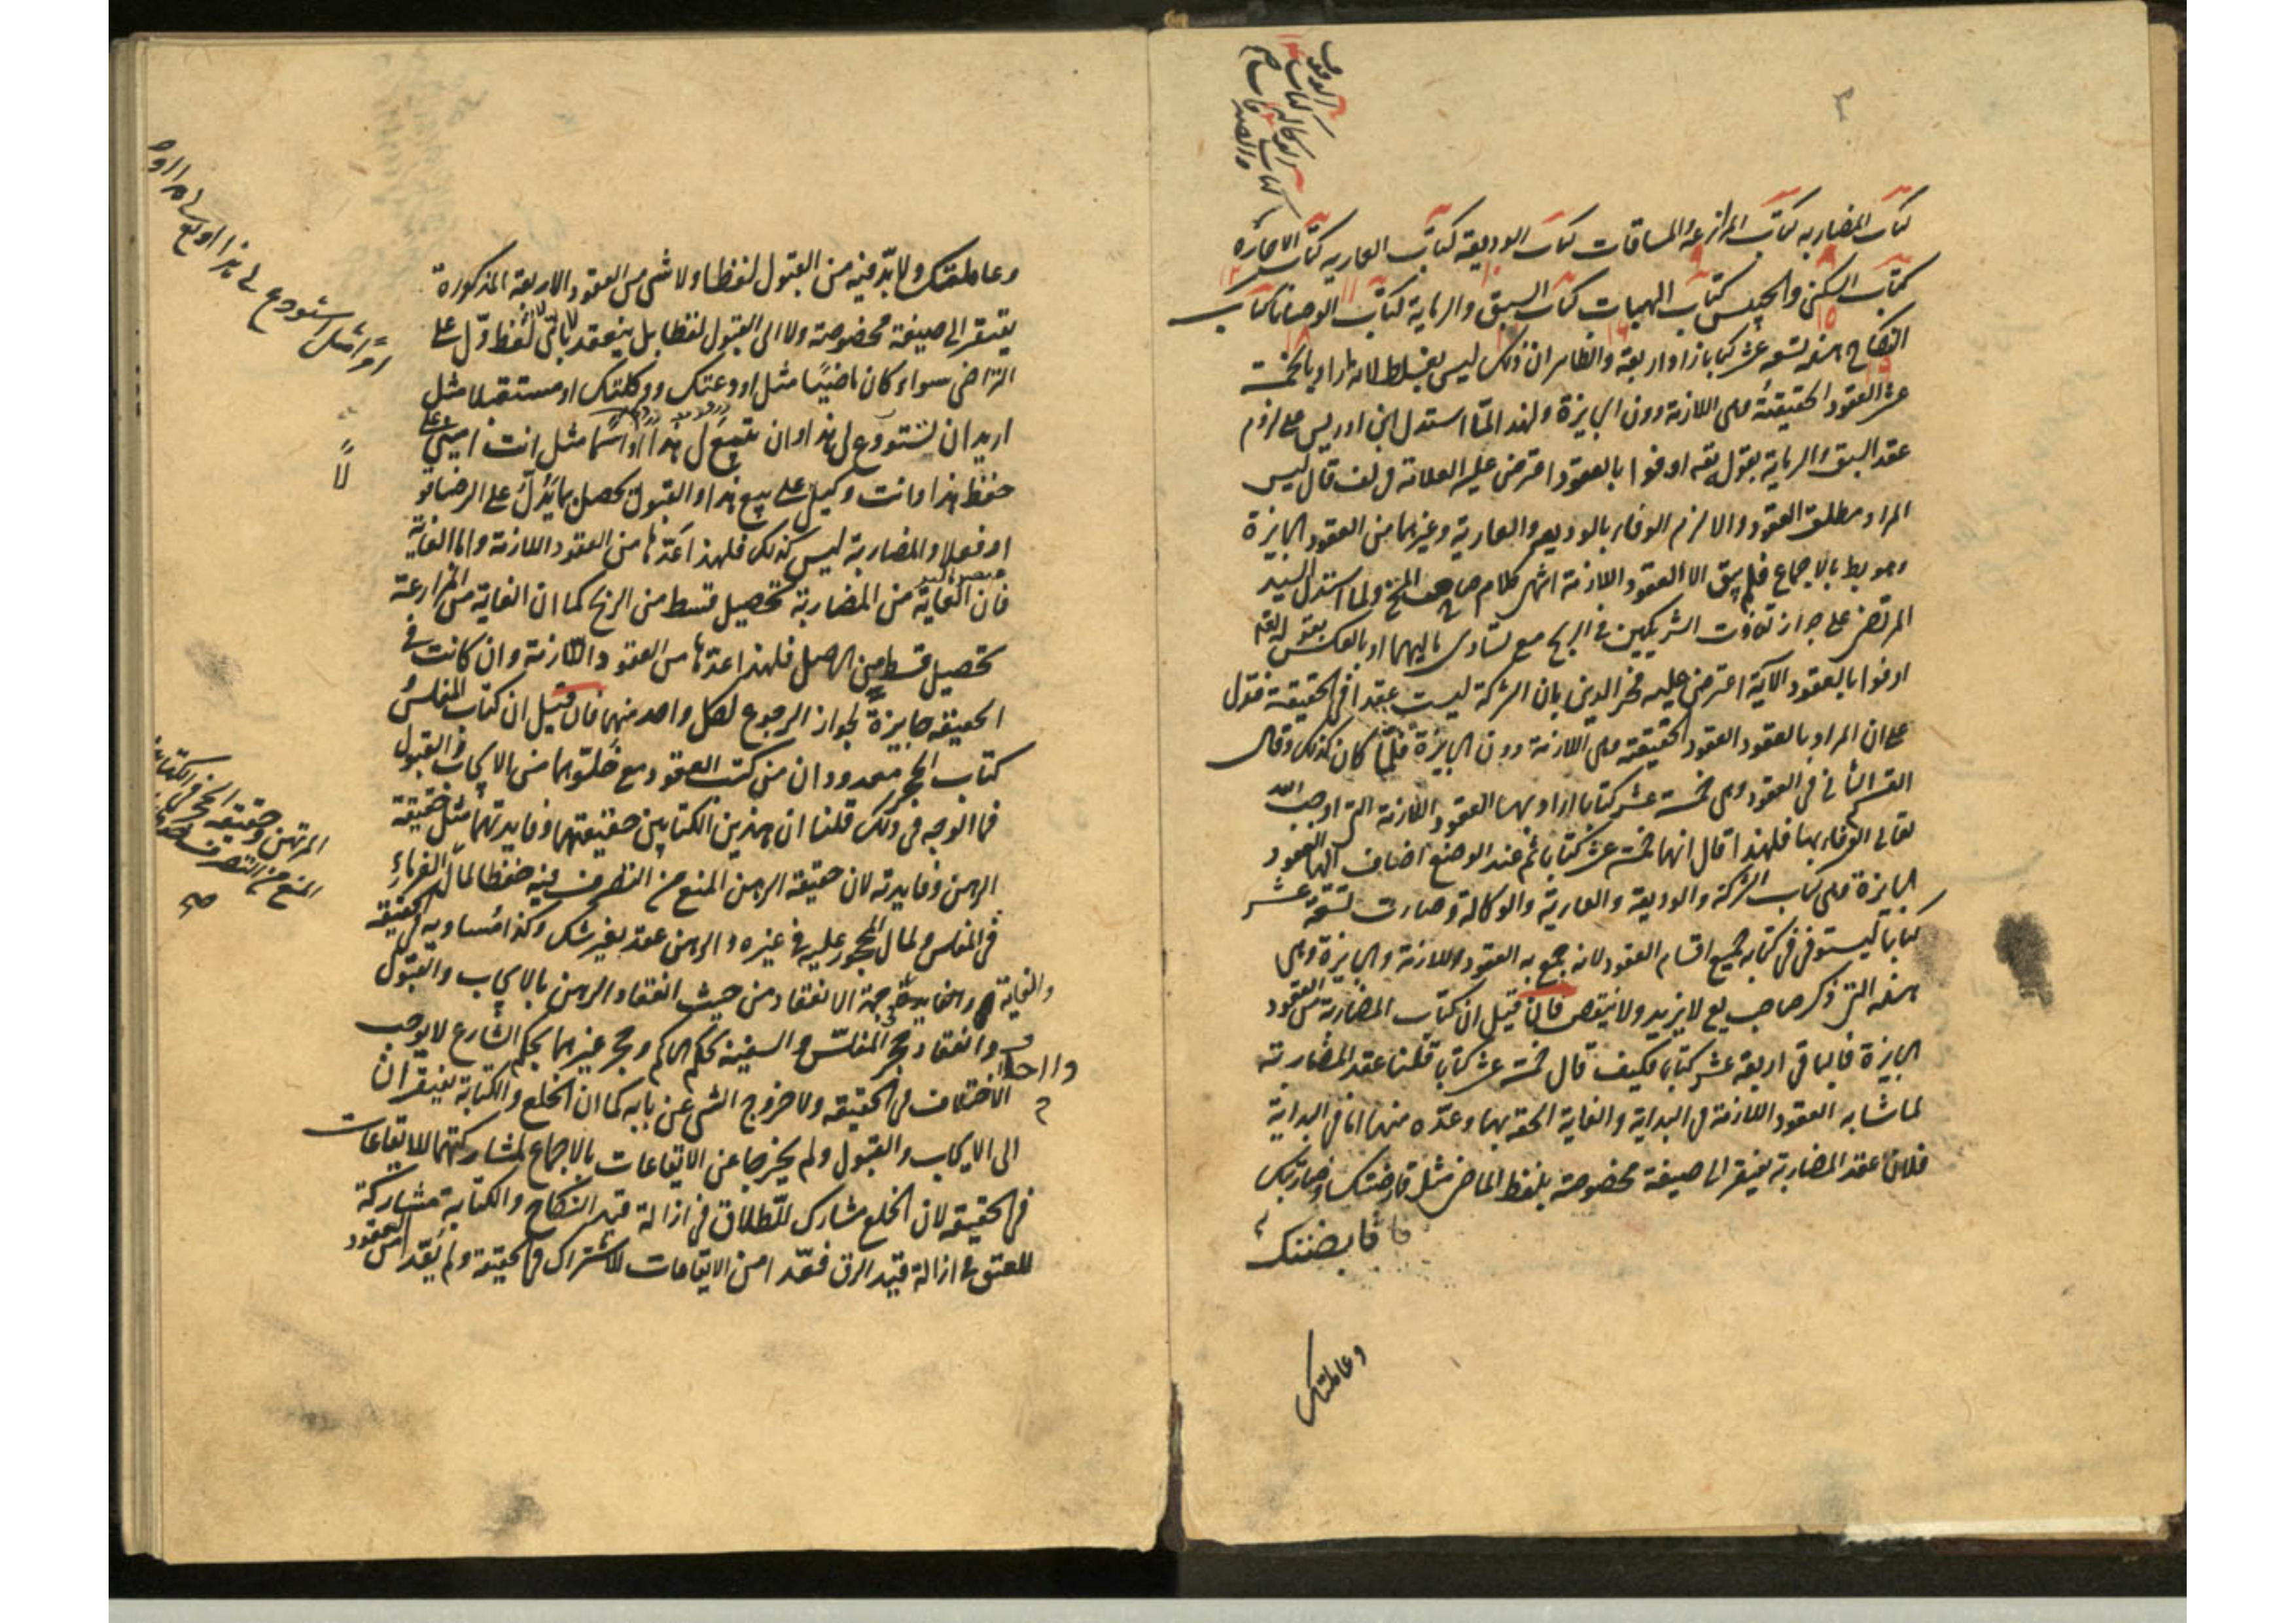 كتاب المضاربه كتاب المزارعة والمساقات كتاب الوديعة كتاب العاريه كتاب الاجاره
كتاب الوكاله كتاب
الوقوف
والصدقات
كتاب السكنى والحبس كتاب الهبات كتاب السبق والرماية كتاب الوصايا كتاب
النكاح هذه تسعه عشر كتابا زاد اربعة والظاهر ان ذلك ليس بغلط لانه اراد بالخمسة
عشر العقود الحقيقية وهى اللازمة دون الجايزة ولهذا لمّا استدل ابن ادريس على لزوم
عقد السبق والرماية بقوله تعه اوفوا بالعقود اعترض عليه العلامة فى لف قال ليس
المراد مطلق العقود والا لزم الوفاء بالوديعه والعارية وغيرهما من العقود الجايزة
وهو بط بالاجماع فلم يبق الا العقود اللازمة انتهى كلامه ولما استدل السيد
المرتضى على جواز تفاوت الشريكين فى الربح مع تساوى ماليهما او بالعكس بقوله تعه
اوفوا بالعقود الآية اعترض عليه فخر الدين بان الشركة ليست عقدا فى الحقيقة فقول
على ان المراد بالعقود العقود الحقيقة وهى اللازمة دون الجايزة فلمّا كان كذلك وقال
القسم الثانى فى العقود وهى خمسة عشر كتابا اراد بها العقود اللازمة التى اوجب الله
تعالى الوفاء بها فلهذا قال انها خمسة عشر كتابا ثم عند الوضع اضاف اليها العقود
الجايزة وهى كتاب الشركة والوديعة والعارية والوكالة وصارت تسعة عشر
كتابا ليستوفى فى كتابه جميع اقسام العقود لانه جمع به العقود اللازمة والجايزة وهى
هذه التى ذكر صاحب يع لا يزيد ولا ينقص فان قيل ان كتاب المضاربة من العقود
الجايزة فالباقى اربعة عشر كتابا فكيف قال خمسة عشر كتابا قلنا عقد المضاربة
لما شابه العقود اللازمة فى البداية والغاية الحقه بها وعدّه منها اما فى البداية
فلان عقد المضاربة يفتقر الى صيغة مخصوصة بلفظ الماضى مثل قارضتك وضاربتك
قابضتك
وعاملتك
وعاملتك ولا بدّ فيه من القبول لفظا ولا شى من العقود الاربعة المذكورة
يفتقر الى صيغة مخصوصة ولا الى القبول لفظا بل ينعقد باىّ لفظ دلّ على
التراضى سواء كان ماضيًا مثل اودعتك ووكلتك او مستقبلا مثل
اريد ان تستودع لى هذا او ان تبيع لى هذا او اسمًا مثل انت امينى على
حفظ هذا وانت وكيلى على بيع هذا والقبول يحصل بما يدلّ على الرضا قولا
او فعلا والمضاربة ليس كذلك فلهذا عدّها من العقود اللازمة واما الغاية
فان الغاية من المضاربة تحصيل قسط من الربح كما ان الغاية من المزارعة
تحصيل قسط من الاصل فلهذا عدّها من العقود اللازمة وان كانت فى
الحقيقة جايزة لجواز الرجوع لكل واحد منهما فان قيل ان كتاب المفلس
كتاب الحجر معدودان من كتب العقود مع خلوّهما من الايجاب والقبول
فما الوجه فى ذلك قلنا ان هذين الكتابين حقيقتهما وفايدتهما مثل حقيقة
الرهن وفايدته لان حقيقة الرهن المنع من التصرف فيه حفظا لمال الغرماء
فى المفلس ولمال المحجور عليه فى غيره والرهن عقد بغير شك وكذا مساويه فى الحقيقة
والغاية والمغايرة من جهة الانعقاد من حيث انعقاد الرهن بالايجاب والقبول
وانعقاد حجر المفلّس والسفيه بحكم الحاكم وحجر غيرهما بحكم الشارع لا يوجب
الاختلاف فى الحقيقة ولا خروج الشى عن بابه كما ان الخلع والكتابة يفتقران
الى الايجاب والقبول ولم يخرجا عن الايقاعات بالاجماع لمشاركتهما للايقاعات
فى الحقيقة لان الخلع مشارك للطلاق فى ازالة قيد النكاح والكتابة مشاركة
للعتق فى ازالة قيد الرق فعدّا من الايقاعات للاشتراك فى الحقيقة ولم يعدّا من العقود
استودع لى هذا او بع لى هذا
المرتهن وحقيقة الحجر فى الكتابين
المنع من التصرف
صح